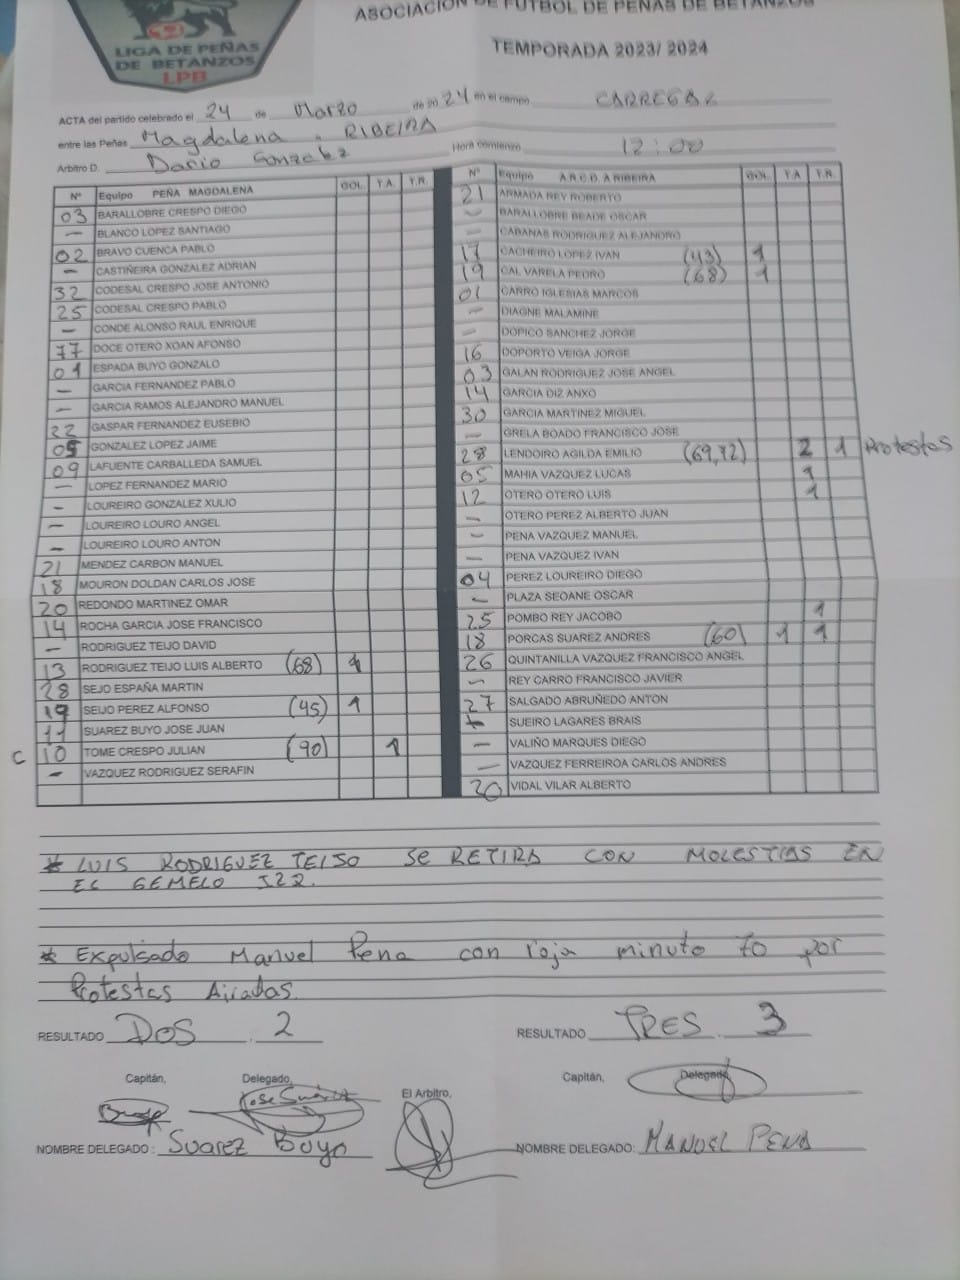 ASOCIACION DE FUTBOL DE PEÑAS DE BETANZOS
LIGA DE PEÑAS
DE BETANZOS
LPB
TEMPORADA 2023/ 2024
ACTA del partido celebrado el 24 de Marzo de 20 24 en el campo CARREGAL
entre las Peñas Magdalena - RIBEIRA
Arbitro D. Dario Gonzalez Hora comienzo 12:00
Nº Equipo PEÑA MAGDALENA GOL T.A. T.R.
03 BARALLOBRE CRESPO DIEGO
— BLANCO LOPEZ SANTIAGO
02 BRAVO CUENCA PABLO
— CASTIÑEIRA GONZALEZ ADRIAN
32 CODESAL CRESPO JOSE ANTONIO
25 CODESAL CRESPO PABLO
— CONDE ALONSO RAUL ENRIQUE
77 DOCE OTERO XOAN AFONSO
01 ESPADA BUYO GONZALO
— GARCIA FERNANDEZ PABLO
— GARCIA RAMOS ALEJANDRO MANUEL
22 GASPAR FERNANDEZ EUSEBIO
05 GONZALEZ LOPEZ JAIME
09 LAFUENTE CARBALLEDA SAMUEL
— LOPEZ FERNANDEZ MARIO
— LOUREIRO GONZALEZ XULIO
— LOUREIRO LOURO ANGEL
— LOUREIRO LOURO ANTON
21 MENDEZ CARBON MANUEL
18 MOURON DOLDAN CARLOS JOSE
20 REDONDO MARTINEZ OMAR
14 ROCHA GARCIA JOSE FRANCISCO
— RODRIGUEZ TEIJO DAVID
13 RODRIGUEZ TEIJO LUIS ALBERTO (68) 1
28 SEJO ESPAÑA MARTIN
19 SEIJO PEREZ ALFONSO (45) 1
11 SUAREZ BUYO JOSE JUAN
C 10 TOME CRESPO JULIAN (90) 1
— VAZQUEZ RODRIGUEZ SERAFIN
Nº Equipo A.R.C.D. A RIBEIRA GOL T.A T.R.
21 ARMADA REY ROBERTO
— BARALLOBRE BEADE OSCAR
— CABANAS RODRIGUEZ ALEJANDRO
17 CACHEIRO LOPEZ IVAN (43) 1
19 CAL VARELA PEDRO (68) 1
01 CARRO IGLESIAS MARCOS
— DIAGNE MALAMINE
— DOPICO SANCHEZ JORGE
16 DOPORTO VEIGA JORGE
03 GALAN RODRIGUEZ JOSE ANGEL
14 GARCIA DIZ ANXO
30 GARCIA MARTINEZ MIGUEL
— GRELA BOADO FRANCISCO JOSE
28 LENDOIRO AGILDA EMILIO (69,72) 2 1 Protestas
05 MAHIA VAZQUEZ LUCAS 1
12 OTERO OTERO LUIS 1
— OTERO PEREZ ALBERTO JUAN
— PENA VAZQUEZ MANUEL
— PENA VAZQUEZ IVAN
04 PEREZ LOUREIRO DIEGO
— PLAZA SEOANE OSCAR
25 POMBO REY JACOBO 1
18 PORCAS SUAREZ ANDRES (60) 1 1
26 QUINTANILLA VAZQUEZ FRANCISCO ANGEL
— REY CARRO FRANCISCO JAVIER
27 SALGADO ABRUÑEDO ANTON
SUEIRO LAGARES BRAIS
— VALIÑO MARQUES DIEGO
— VAZQUEZ FERREIROA CARLOS ANDRES
20 VIDAL VILAR ALBERTO
* LUIS RODRIGUEZ TEIJO SE RETIRA CON MOLESTIAS EN
EL GEMELO IZQ.
* Expulsado Manuel Pena con roja minuto 70 por
Protestas Airadas.
RESULTADO DOS . 2 RESULTADO TRES . 3
Capitán, Delegado, El Arbitro, Capitán, Delegado,
Jose Suárez
NOMBRE DELEGADO : Suarez Buyo NOMBRE DELEGADO: MANUEL PENA